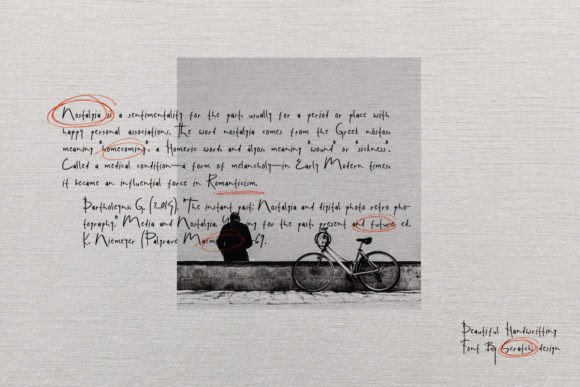 Nostalgia is a sentimentality for the past, usually for a period or place with
happy personal associations. The word nostalgia comes from the Greek nóstos,
meaning "homecoming", a Homeric word, and algos, meaning "wound" or "sickness".
Called a medical condition—a form of melancholy—in Early Modern times,
it became an influential force in Romanticism.
Bartholeyns, G. (2014). "The instant past: Nostalgia and digital photo retro pho-
tography." Media and Nostalgia. for the past, present and future, ed.
K. Niemeyer (Palgrave
Beautiful Handwritting
Font By Scratch design